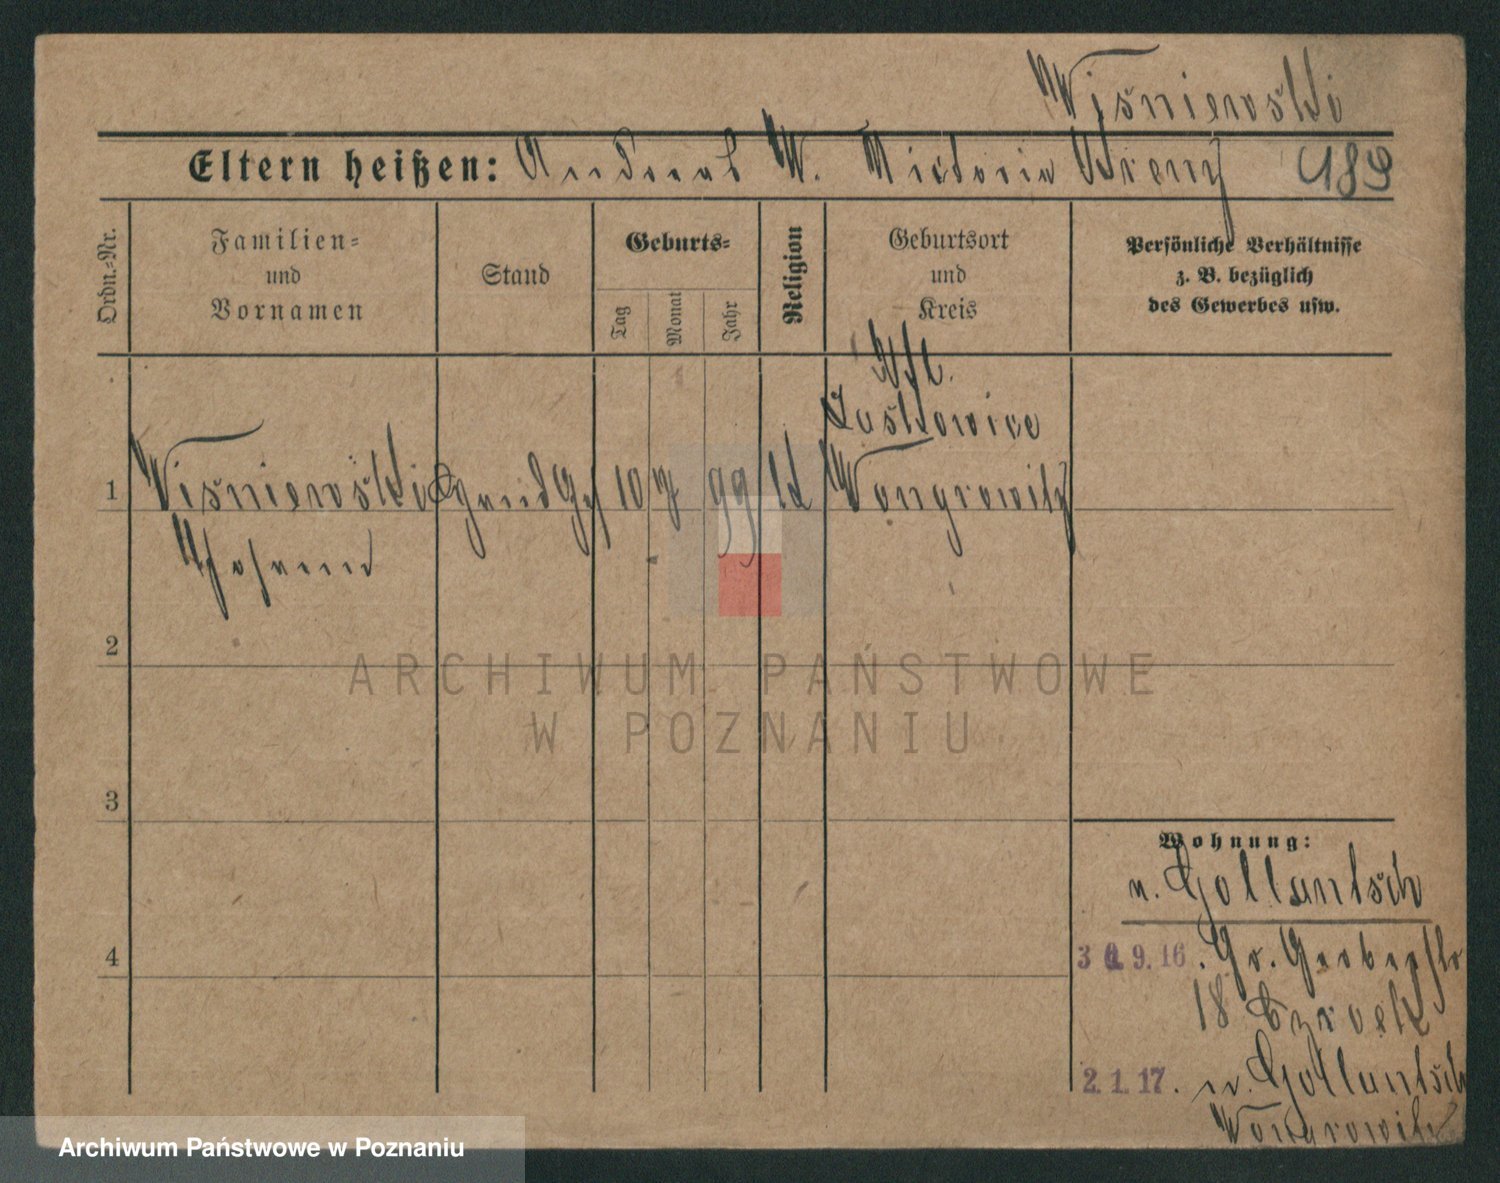 Wisniewski
Eltern heißen: Andreas W. Victoria Krenz 189
Ordn.-Nr.
Familien-
und
Vornamen
Stand
Geburts-
Tag
Monat
Jahr
Religion
Geburtsort
und
Kreis
Persönliche Verhältnisse
z. B. bezüglich
des Gewerbes usw.
1
Wisniewski
Johann
10 7 99 kt
Laskowice
Wongrowitz
2
3
4
Wohnung:
n. Gollantsch
30.9.16. Gr. Gerberstr
18
2.1.17. n. Gollantsch
Wongrowitz
ARCHIWUM PAŃSTWOWE
W POZNANIU
Archiwum Państwowe w Poznaniu